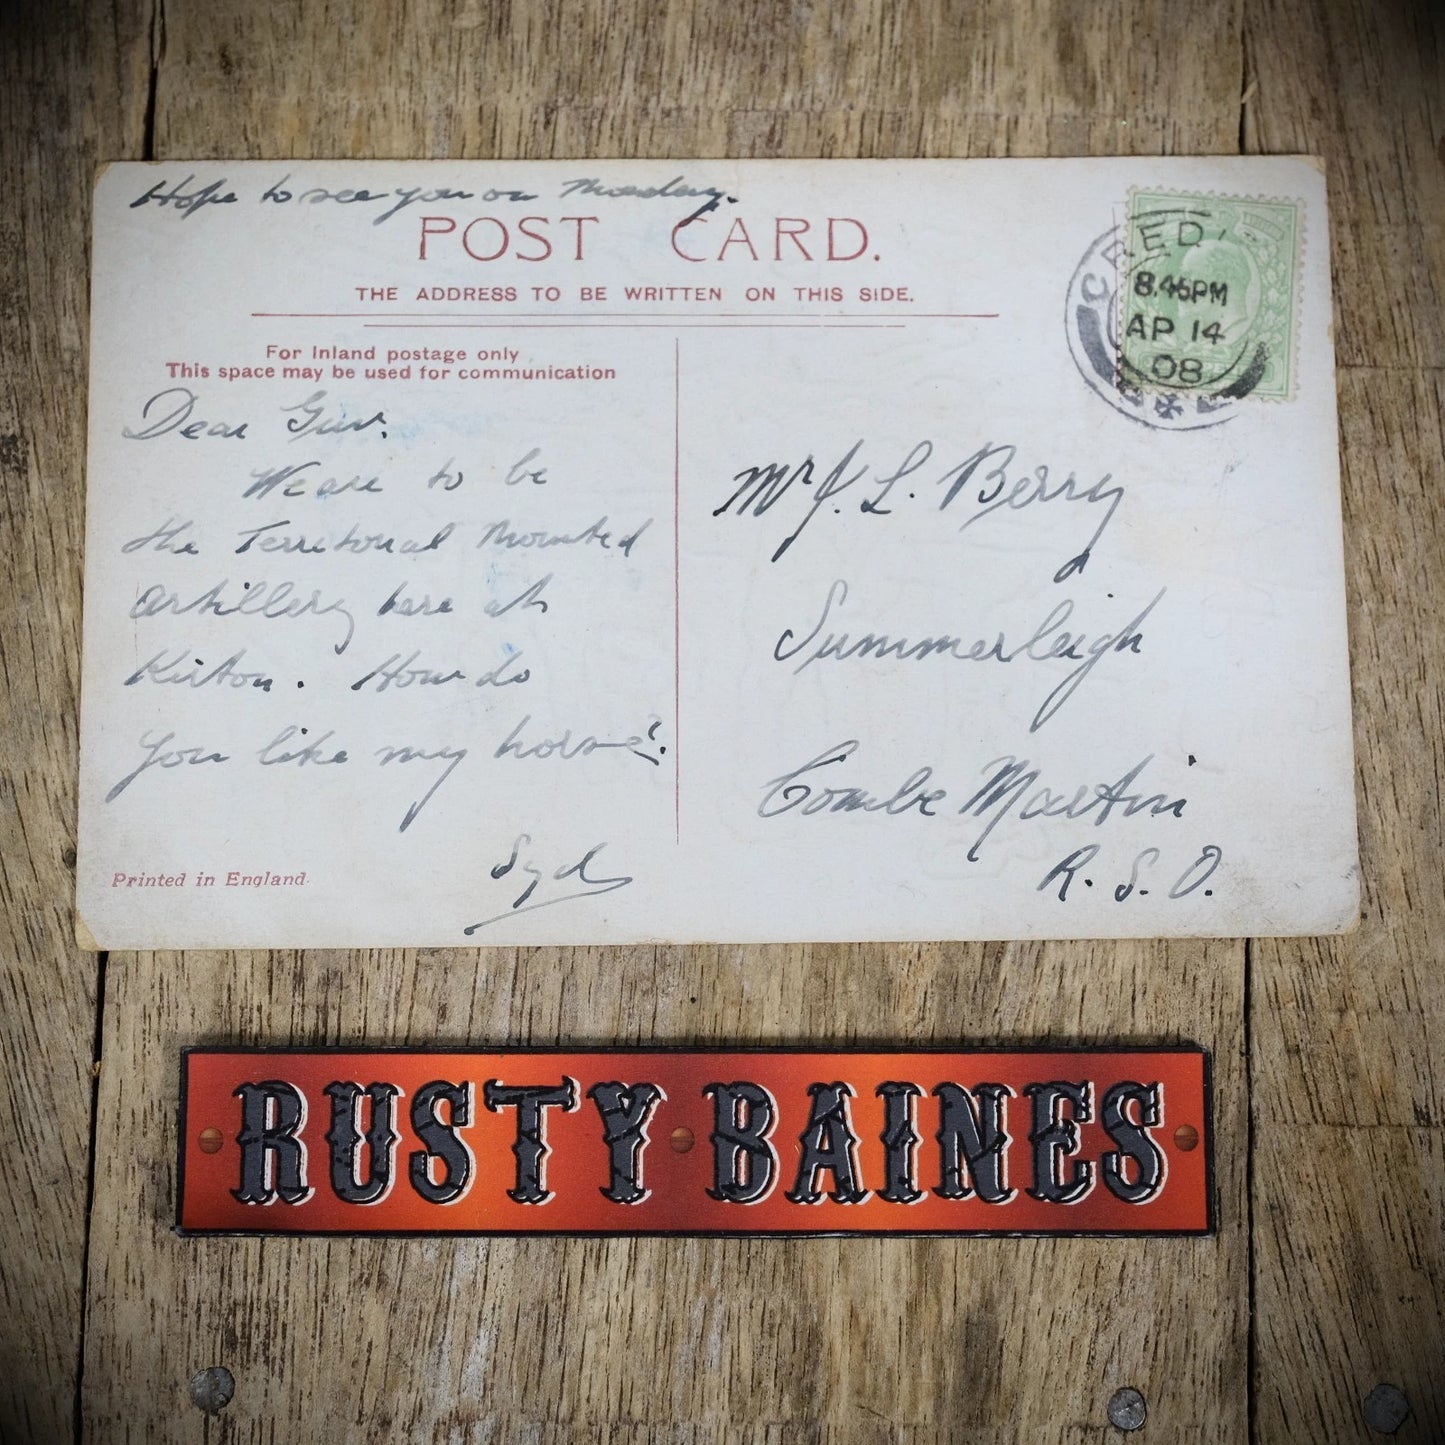 Hope to see you on Monday.
POST CARD.
THE ADDRESS TO BE WRITTEN ON THIS SIDE.
For Inland postage only
This space may be used for communication
Dear Guv.
We are to be
the Territorial Mounted
Artillery here at
Kirton. How do
you like my horse?
Syd
Printed in England.
CRED
8.45PM
AP 14
08
Mr J. L. Berry
Summerleigh
Combe Martin
R. S. O.
RUSTY BAINES